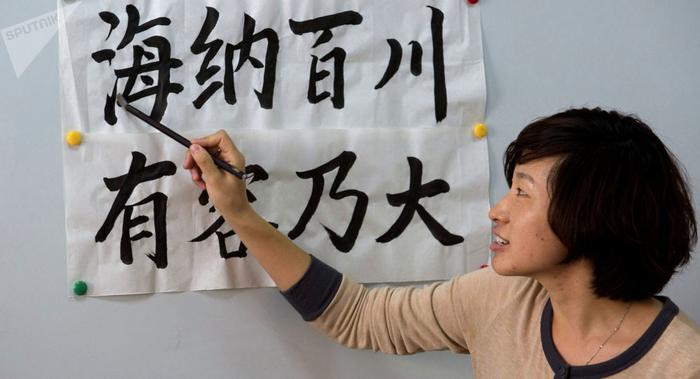 SPUTNIK
海纳百川
有容乃大